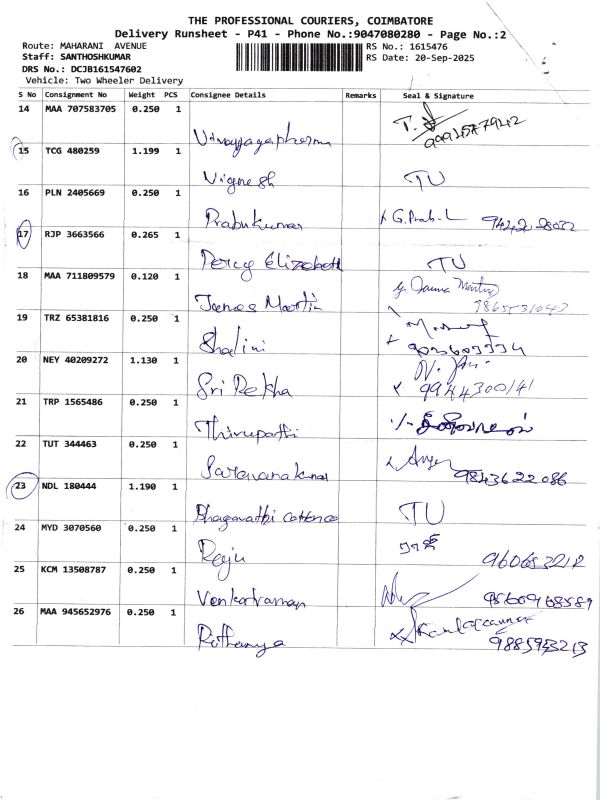 THE PROFESSIONAL COURIERS, COIMBATORE
Delivery Runsheet - P41 - Phone No.:9047080280 - Page No.:2
Route: MAHARANI AVENUE
RS No.: 1615476
Staff: SANTHOSHKUMAR
RS Date: 20-Sep-2025
DRS No.: DCJB161547602
Vehicle: Two Wheeler Delivery
S No Consignment No Weight PCS Consignee Details Remarks Seal & Signature
14 MAA 707583705 0.250 1
Vinayagapharma
15 TCG 480259 1.199 1
Vignesh TU
16 PLN 2405669 0.250 1
Prabukumar
17 RJP 3663566 0.265 1
Percy Elizabeth TU
18 MAA 711809579 0.120 1
James Martin
19 TRZ 65381816 0.250 1
Shalini
20 NEY 40209272 1.130 1
Sri Rekha 9944300141
21 TRP 1565486 0.250 1
Thirupathi
22 TUT 344463 0.250 1
Saravanakumar 9843622086
23 NDL 180444 1.190 1
Bhagavathi TU
24 MYD 3070560 0.250 1
Raju
25 KCM 13508787 0.250 1
Venkatraman
26 MAA 945652976 0.250 1